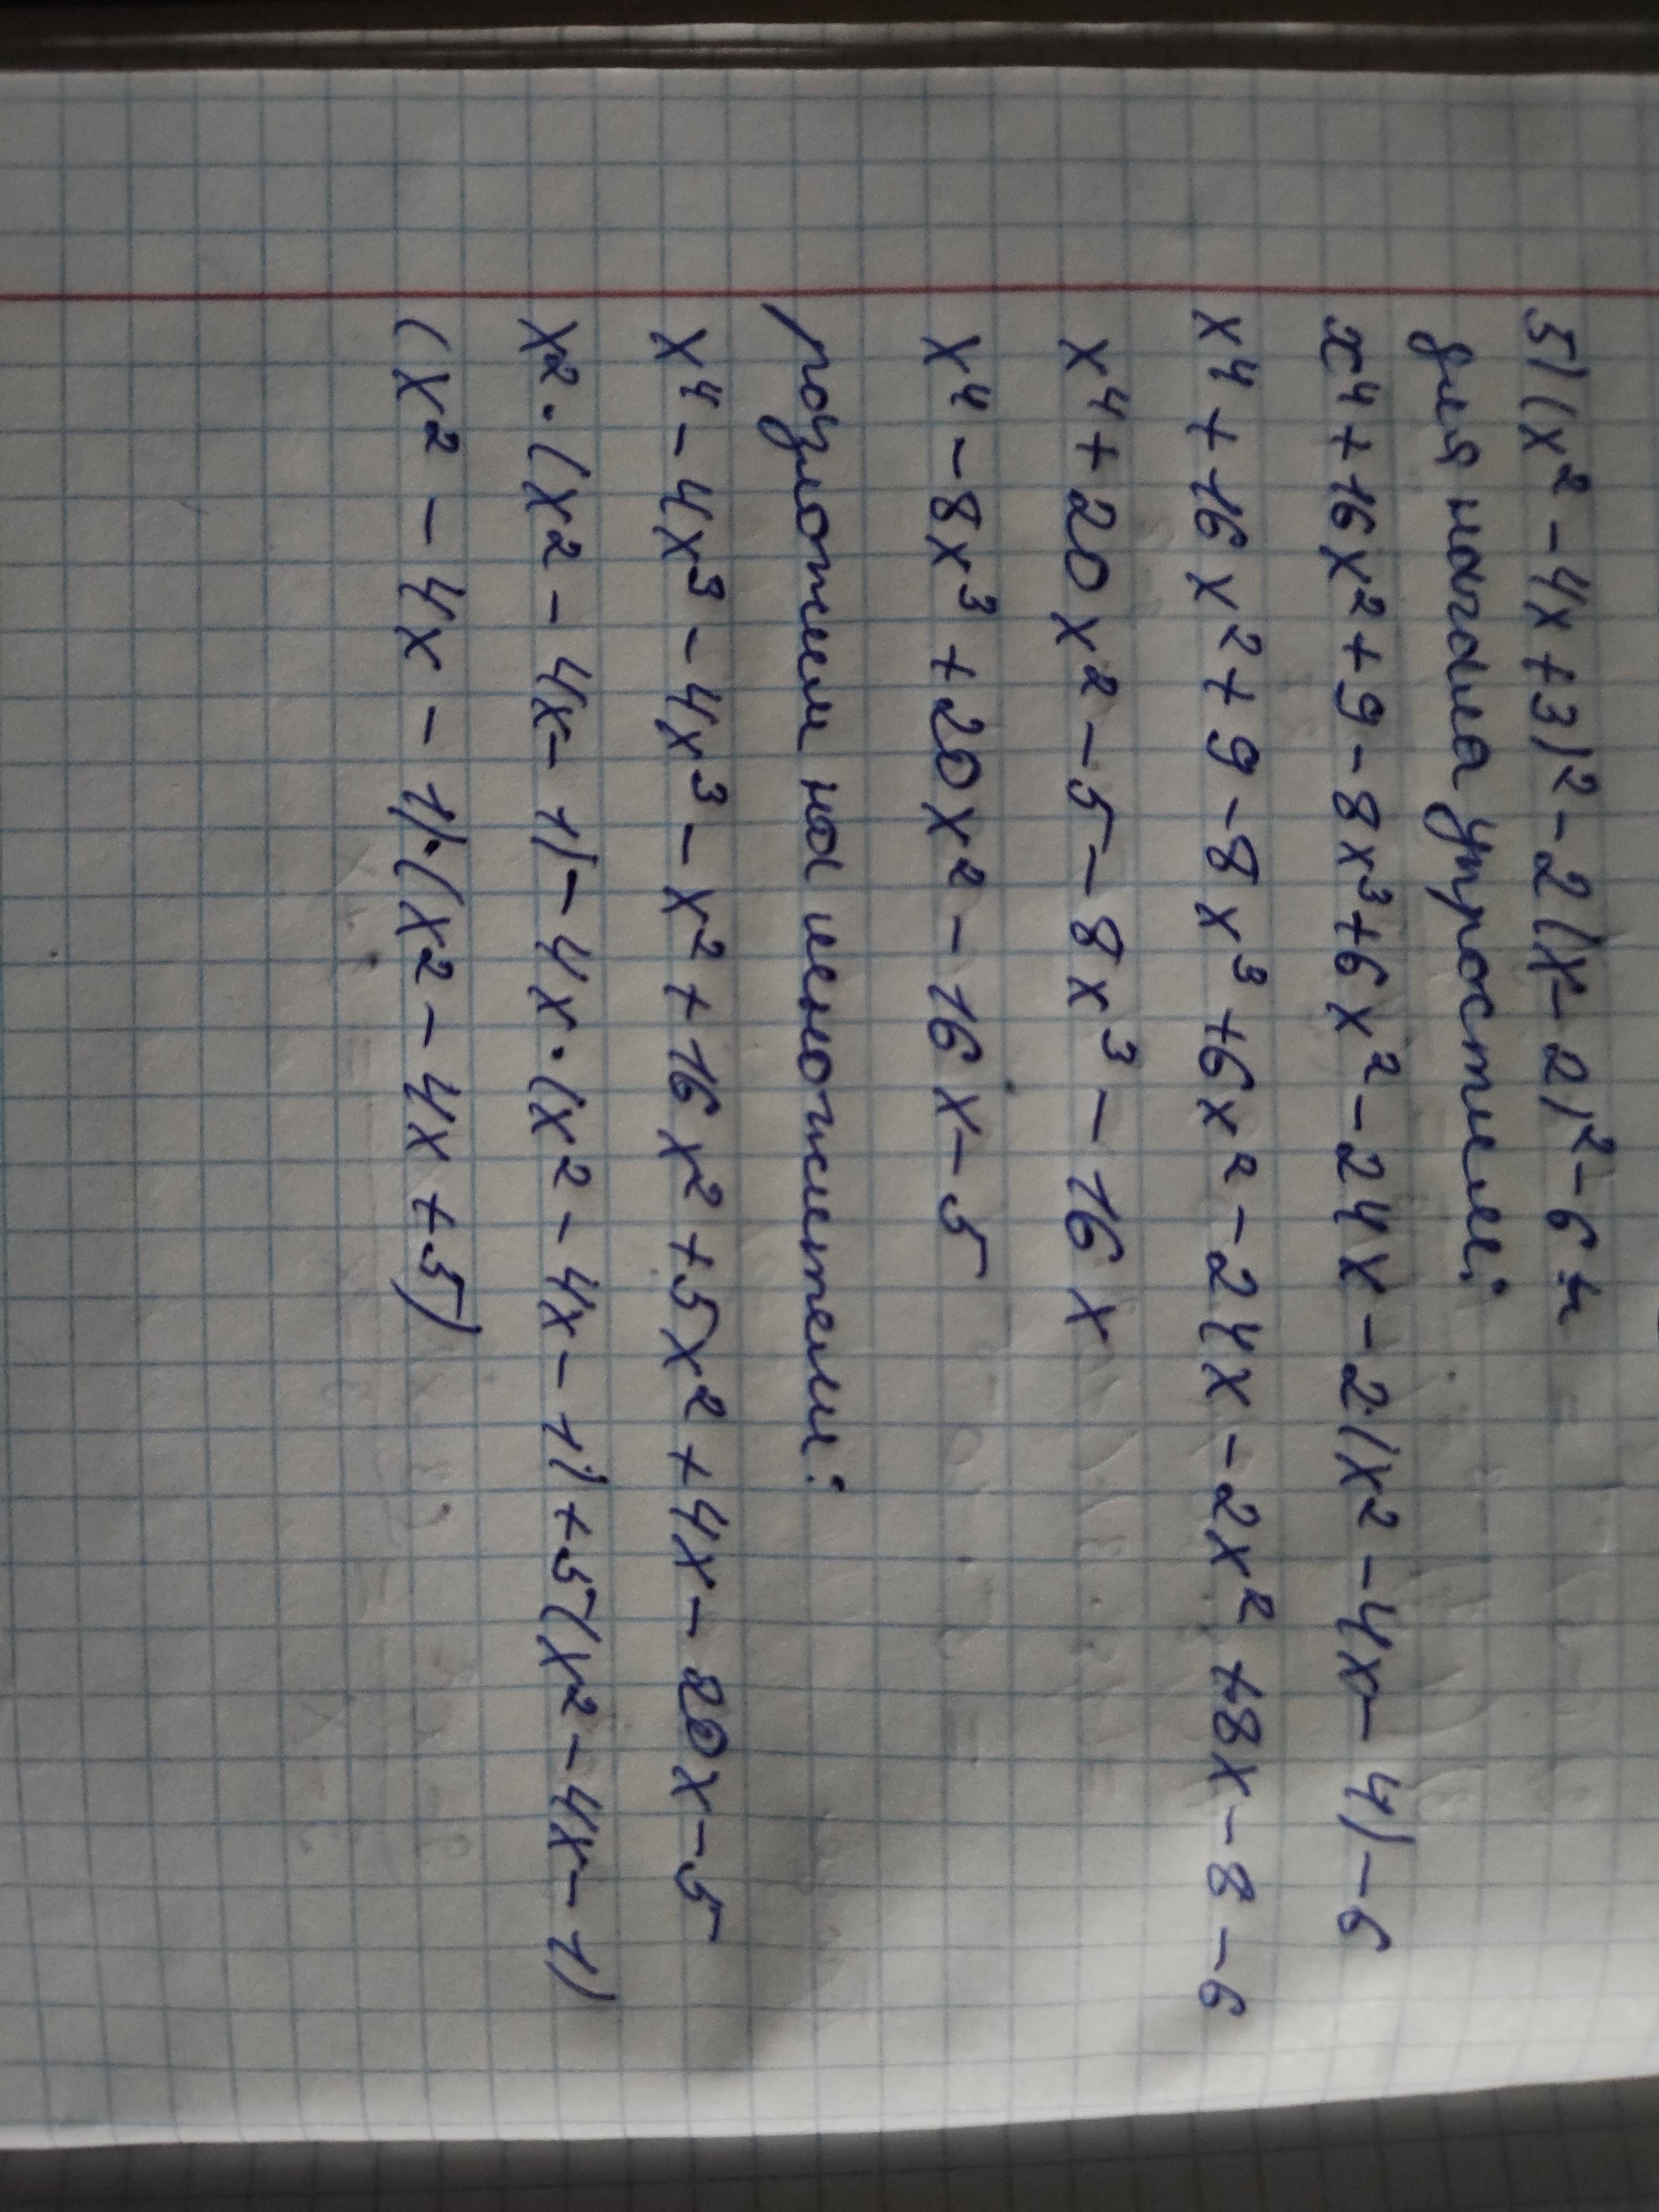 5) (x² - 4x + 3)² - 2(x - 2)² - 6 =
для начала упростим:
x⁴ + 16x² + 9 - 8x³ + 6x² - 24x - 2(x² - 4x - 4) - 6
x⁴ + 16x² + 9 - 8x³ + 6x² - 24x - 2x² + 8x - 8 - 6
x⁴ + 20x² - 5 - 8x³ - 16x
x⁴ - 8x³ + 20x² - 16x - 5
разложим на множители:
x⁴ - 4x³ - 4x³ - x² + 16x² + 5x² + 4x - 20x - 5
x² · (x² - 4x - 1) - 4x · (x² - 4x - 1) + 5(x² - 4x - 1)
(x² - 4x - 1) · (x² - 4x + 5)